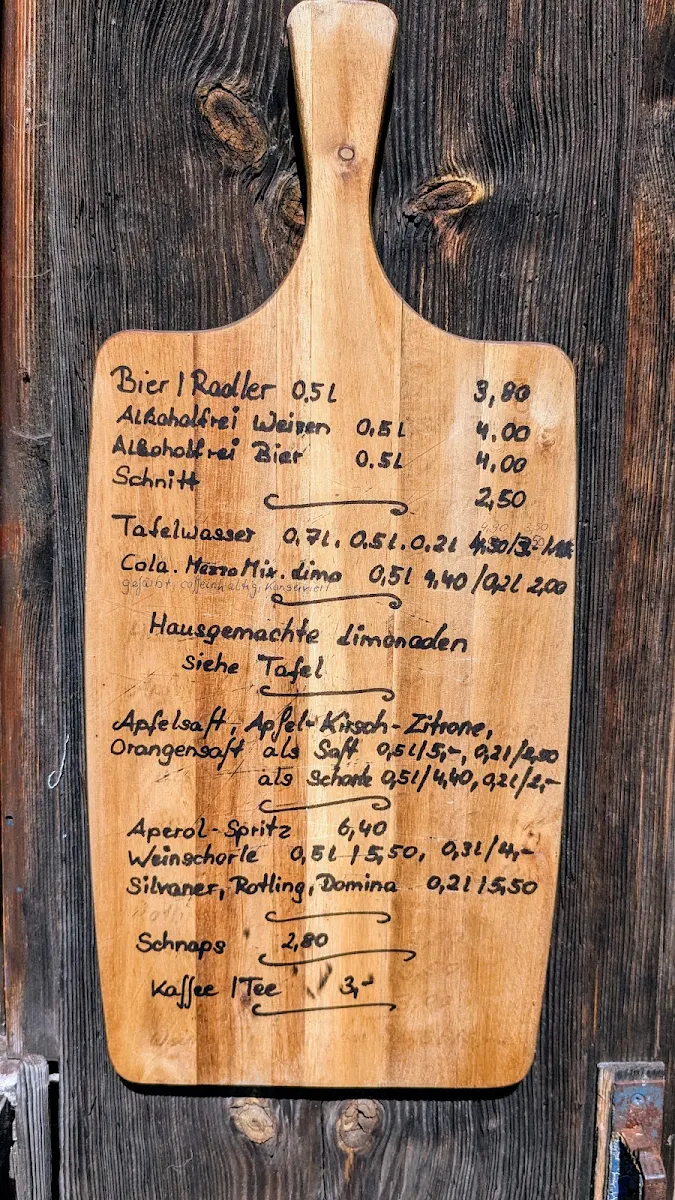 Bier / Radler 0,5L 3,80
Alkoholfrei Weizen 0,5L 4,00
Alkoholfrei Bier 0.5L 4,00
Schnitt 2,50
Tafelwasser 0,7l. 0,5l. 0,2l
Cola. MezzoMix. Limo 0,5l 4,40 / 0,2l 2,00
gefärbt, coffeinhaltig,
Hausgemachte Limonaden
siehe Tafel
Apfelsaft, Apfel-Kirsch-Zitrone,
Orangensaft als Saft 0,5l/5,-, 0,2l/2,50
als Schorle 0,5l/4,40, 0,2l/2,-
Aperol-Spritz 6,40
Weinschorle 0,5l / 5,50, 0,3l/4,-
Silvaner, Rotling, Domina 0,2l / 5,50
Schnaps 2,80
Kaffee / Tee 3,-